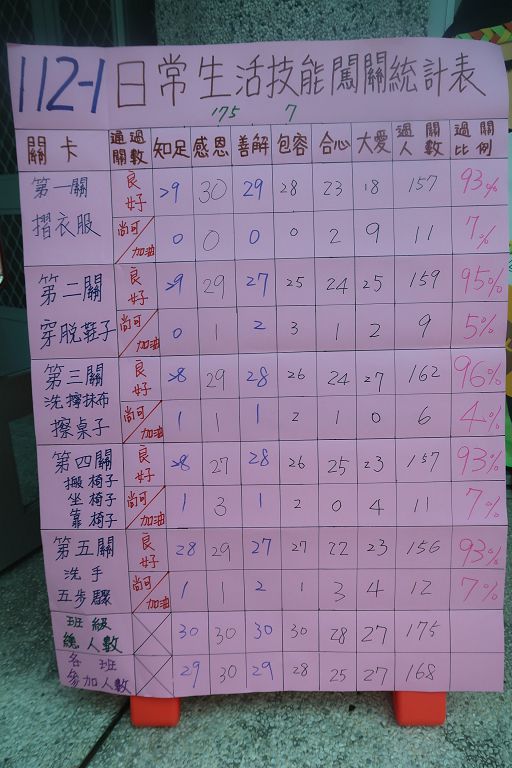 112-1 日常生活技能闖關統計表
175 7
關卡 通過關數 知足 感恩 善解 包容 合心 大愛 過關人數 過關比例
第一關 摺衣服 良好 29 30 29 28 23 18 157 93%
尚可/加油 0 0 0 0 2 9 11 7%
第二關 穿脫鞋子 良好 29 29 27 25 24 25 159 95%
尚可/加油 0 1 2 3 1 2 9 5%
第三關 洗擰抹布 擦桌子 良好 28 29 28 26 24 27 162 96%
尚可/加油 1 1 1 2 1 0 6 4%
第四關 搬椅子 坐椅子 靠椅子 良好 28 27 28 26 25 23 157 93%
尚可/加油 1 3 1 2 0 4 11 7%
第五關 洗手 五步驟 良好 28 29 27 27 22 23 156 93%
尚可/加油 1 1 2 1 3 4 12 7%
班級總人數 30 30 30 30 28 27 175
各班參加人數 29 30 29 28 25 27 168